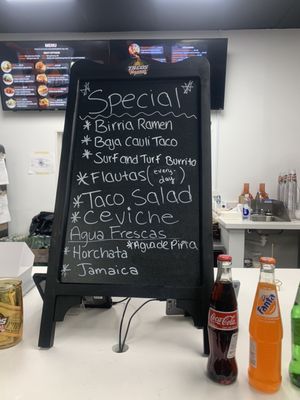 MENU
TACOS
*Special*
* Birria Ramen
* Baja Cauli Taco
* Surf and Turf Burrito
* Flautas (every-day)
* Taco Salad
* Ceviche
Agua Frescas
* Horchata * Agua de Piña
* Jamaica
Coca-Cola
Fanta